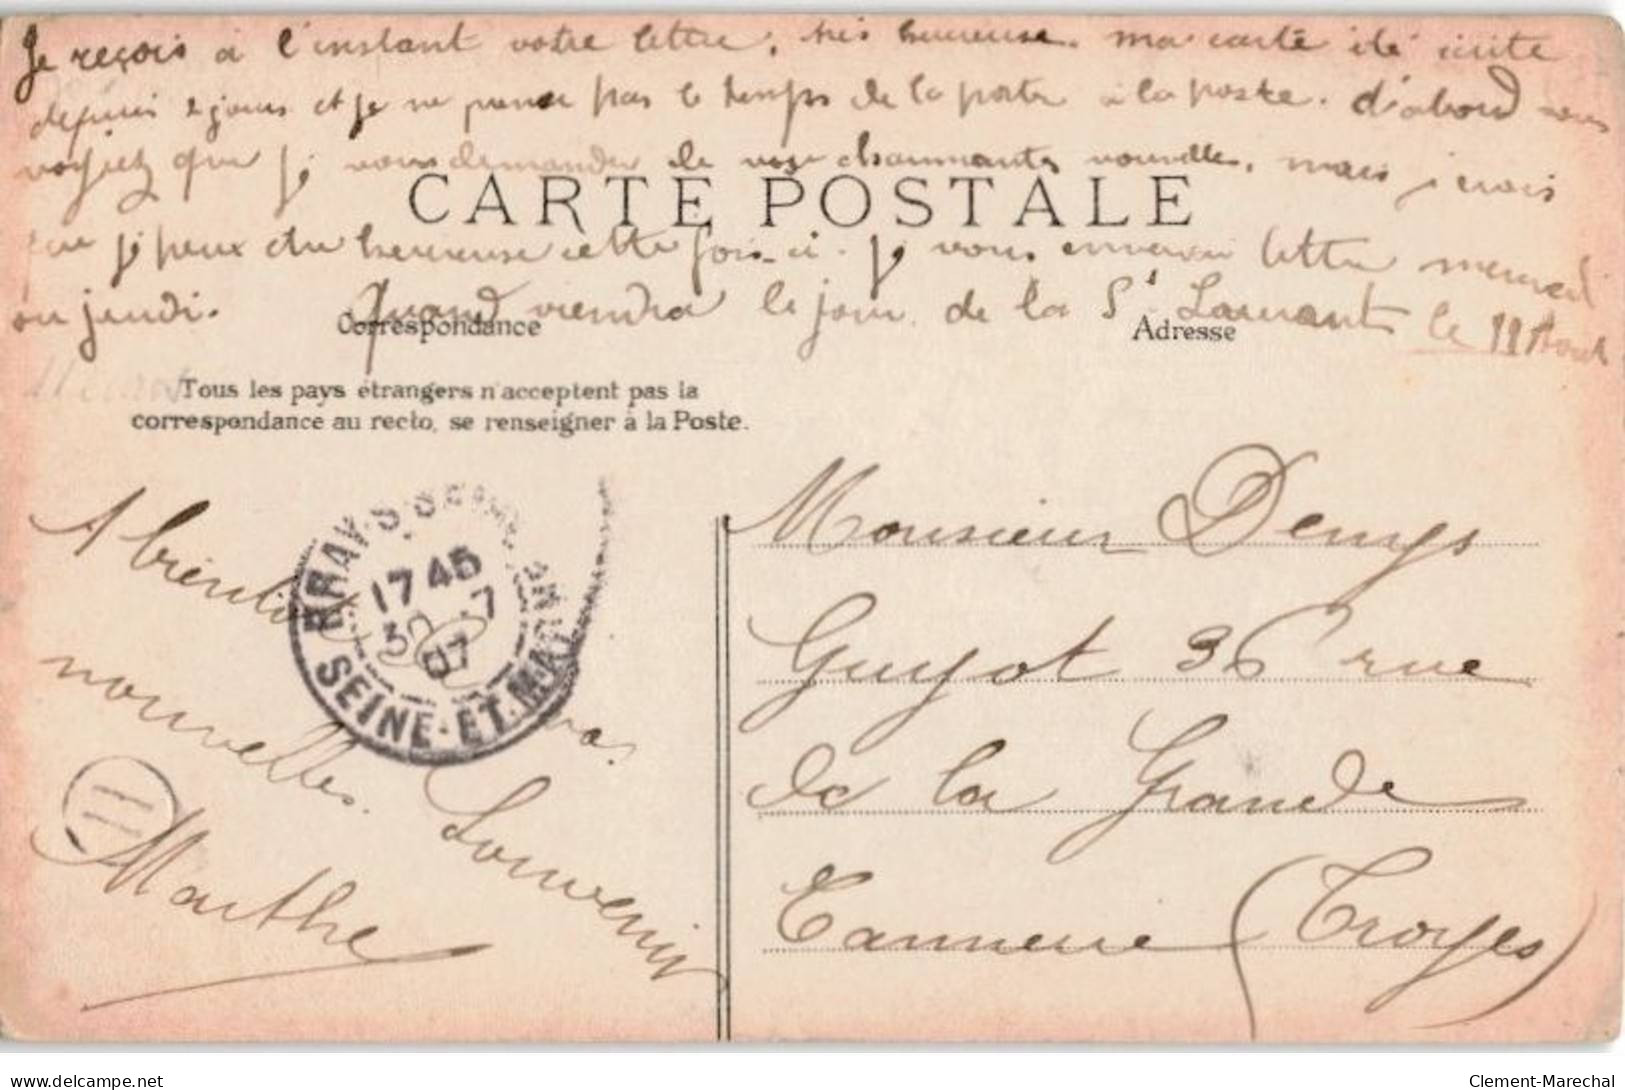 Je reçois à l'instant votre lettre, très heureuse. ma carte été écrite
depuis 2 jours et je ne pense pas le temps de la porter à la poste. d'abord vous
voyiez que je vous demander de vos charmantes nouvelles, mais j crois
que je peux être heureuse cette fois-ci. Je vous enverrai lettre mercredi
ou jeudi. Quand viendra le jour de la St Laurant le 11 Aout
CARTE POSTALE
Correspondance
Adresse
Tous les pays étrangers n'acceptent pas la
correspondance au recto, se renseigner à la Poste.
A bientôt vos
nouvelles. Souvenir
Marthe
BRAY-S-SEINE
17 45
30 -7
07
SEINE-ET-MARNE
Monsieur Denys
Guyot 36 rue
de la Grande
Tannerie (Troyes)
delcampe.net
Clement-Marechal